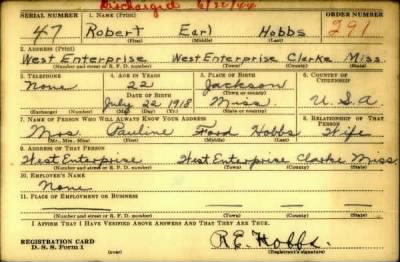 Discharged 6/22/44
SERIAL NUMBER 1. NAME (Print) ORDER NUMBER
47 Robert Earl Hobbs 291
(First) (Middle) (Last)
2. ADDRESS (Print)
West Enterprise West Enterprise Clarke Miss.
(Number and street or R. F. D. number) (Town) (County) (State)
3. TELEPHONE 4. AGE IN YEARS 5. PLACE OF BIRTH 6. COUNTRY OF CITIZENSHIP
None 22 Jackson
DATE OF BIRTH (Town or county)
July 22 1918 Miss. U.S.A
(Exchange) (Number) (Mo.) (Day) (Yr.) (State or country)
7. NAME OF PERSON WHO WILL ALWAYS KNOW YOUR ADDRESS 8. RELATIONSHIP OF THAT PERSON
Mrs. Pauline Ford Hobbs Wife
(Mr., Mrs., Miss) (First) (Middle) (Last)
9. ADDRESS OF THAT PERSON
West Enterprise West Enterprise Clarke Miss
(Number and street or R. F. D. number) (Town) (County) (State)
10. EMPLOYER'S NAME
None
11. PLACE OF EMPLOYMENT OR BUSINESS
(Number and street or R. F. D. number) (Town) (County) (State)
I AFFIRM THAT I HAVE VERIFIED ABOVE ANSWERS AND THAT THEY ARE TRUE.
REGISTRATION CARD R.E. Hobbs.
D. S. S. Form 1 (over) (Registrant's signature)